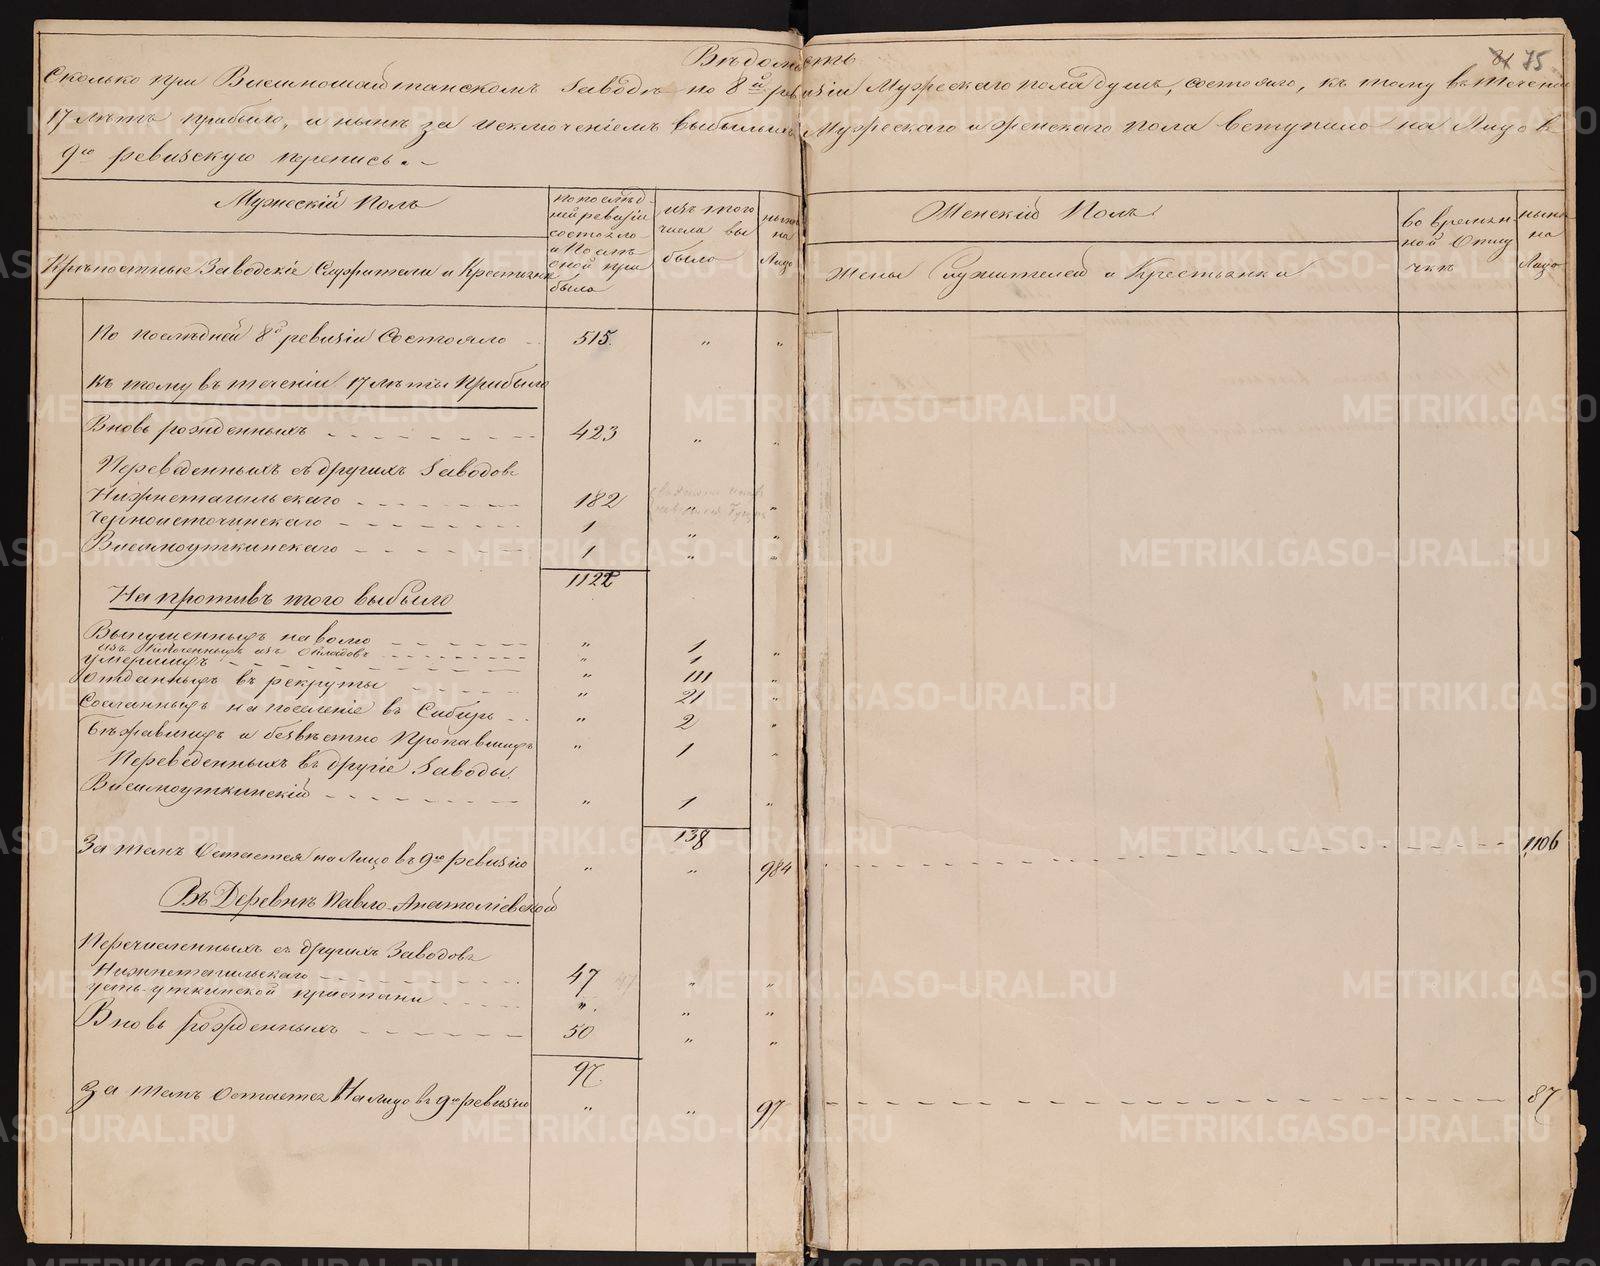 Вѣдомость
75
Сколько при Висимошайтанскомъ Заводѣ по 8й ревизіи Мужескаго пола душъ, состояло, къ тому въ теченіи
17 лѣтъ прибыло, и нынѣ за исключеніемъ выбылыхъ Мужескаго и женскаго пола вступило на Лицо въ
9ю ревизскую перепись.
Мужескій Полъ
по послѣд-
ней ревизіи
состояло
и Послѣ
оной при
было
изъ того
числа вы
было
нынѣ
на
Лицо
Женскій Полъ
во времян-
ной Отлу
чкѣ
нынѣ
на
Лицо
Крѣпостные Заводскіе Служители и Крестьяне
Жены Служителей и Крестьянки
По послѣдней 8й ревизіи Состояло 515. " "
къ тому въ теченіи 17 лѣтъ Прибыло
Вновь рожденныхъ 423 " "
Переведенныхъ съ другихъ Заводовъ
Нижнетагильскаго 182 " "
Черноисточинскаго 1 " "
Висимоуткинскаго 1 " "
1122
На противъ того выбыло
Выпущенныхъ на волю " 1 "
изъ окладовъ " 1 "
умершихъ " 111 "
Отданныхъ въ рекруты " 21 "
Сосланныхъ на поселеніе въ Сибирь " 2 "
Бѣжавшихъ и безвѣстно Пропавшихъ " 1 "
Переведенныхъ въ другіе Заводы.
Висимоуткинскій " 1 "
138
За тѣмъ Остается на Лицо въ 9ю ревизію " " 984 1106
Въ Деревнѣ Павло-Анатоліевской
Перечисленныхъ съ другихъ Заводовъ
Нижнетагильскаго 47 " "
Усть-уткинской пристани " " "
Вновь рожденныхъ 50 " "
97
За тѣмъ Остается На лицо въ 9ю ревизію " " 97 87
METRIKI.GASO-URAL.RU